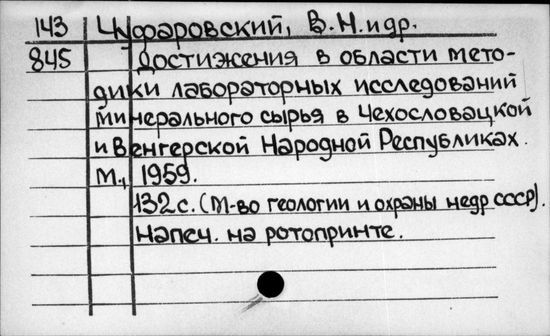 143 Чуфаровский, В.Н. и др.
845 Достижения в области мето-
дики лабораторных исследований
минерального сырья в Чехословацкой
и Венгерской Народной Республиках.
М., 1959.
132 с. (М-во геологии и охраны недр СССР).
Напеч. на ротопринте.